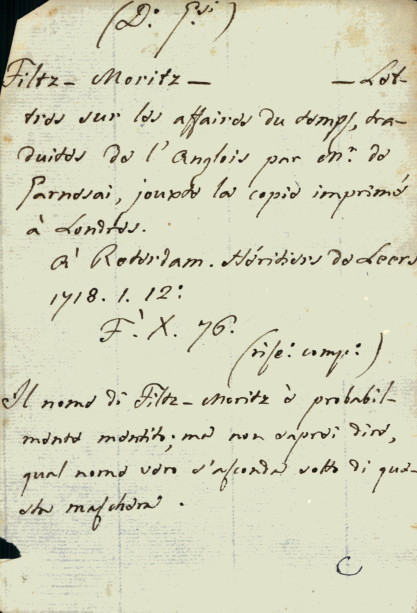 (D: G:si)
Filtz - Moritz — — Let-
tres sur les affaires du temps, tra-
duites de l'Anglois par Mr. de
Garnesai, jouxte la copie imprimé
à Londres.
A Roterdam. Héritiers de Leers
1718. 1. 12:
F. X. 76.
(rise: comp:)
Il nome di Filtz - Moritz è probabil-
mente mentito; ma non saprei dire,
qual nome vero s'asconda sotto di que-
sta maschera.
C